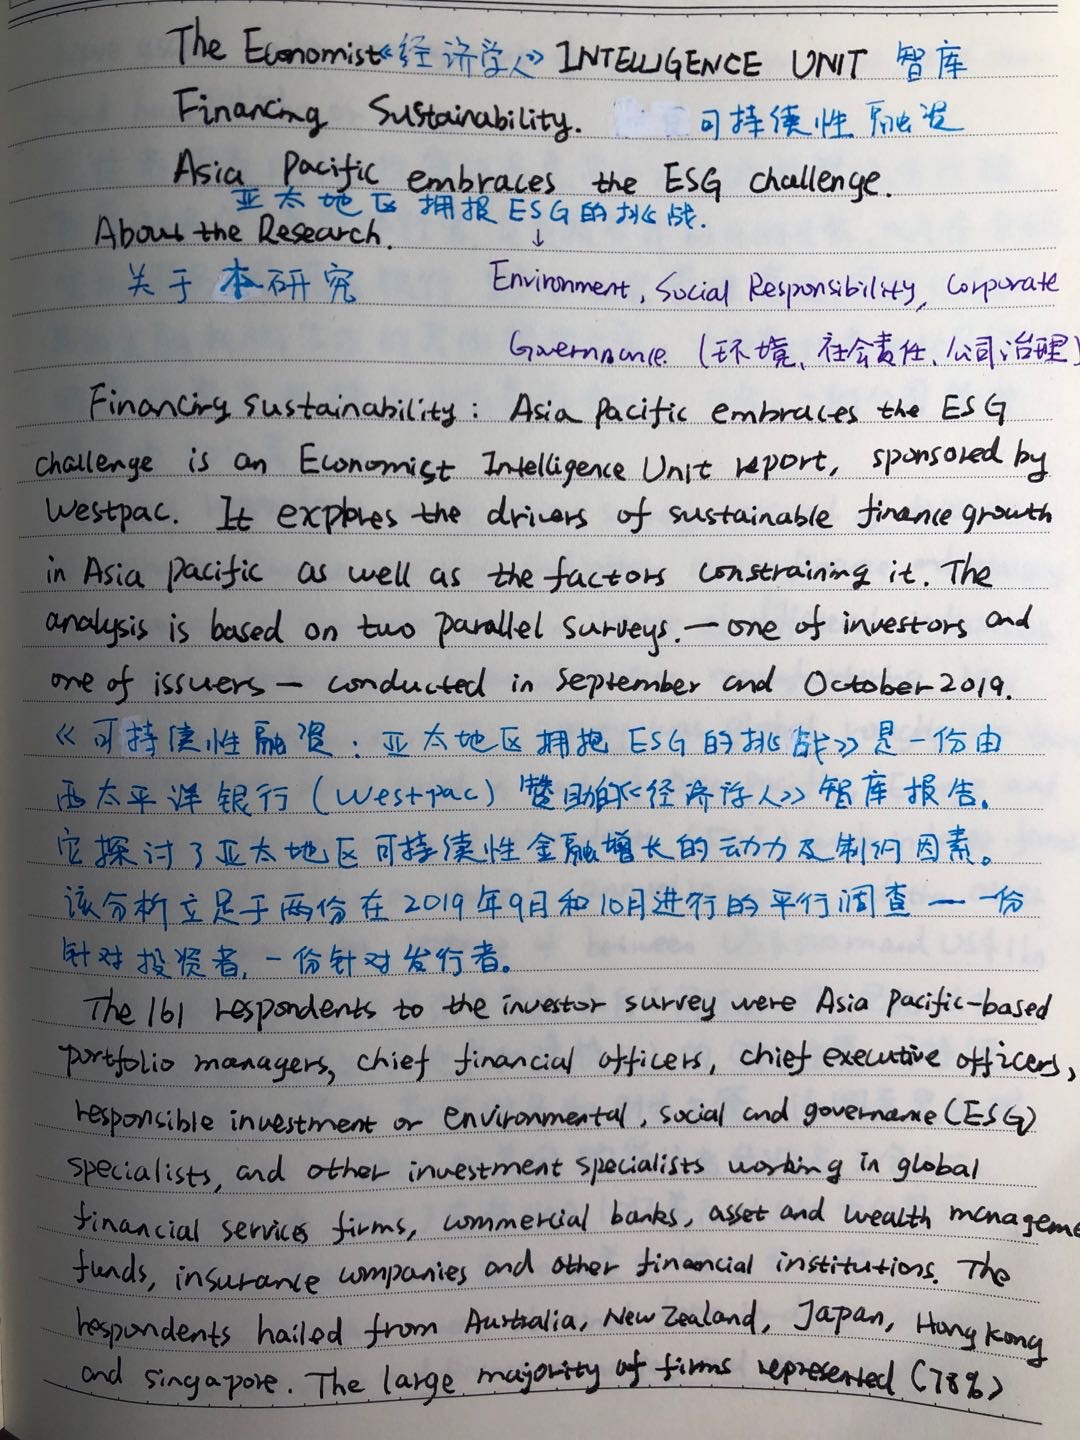 The Economist《经济学人》 INTELLIGENCE UNIT 智库
Financing Sustainability. 可持续性融资
Asia Pacific embraces the ESG challenge.
亚太地区拥抱ESG的挑战.
About the Research. ↓
关于本研究 Environment, Social Responsibility, Corporate
Governance. (环境、社会责任、公司治理)
Financing sustainability: Asia Pacific embraces the ESG
challenge is an Economist Intelligence Unit report, sponsored by
Westpac. It explores the drivers of sustainable finance growth
in Asia Pacific as well as the factors constraining it. The
analysis is based on two parallel surveys.—one of investors and
one of issuers— conducted in September and October 2019.
《可持续性融资：亚太地区拥抱ESG的挑战》是一份由
西太平洋银行(Westpac)赞助的《经济学人》智库报告。
它探讨了亚太地区可持续性金融增长的动力及制约因素。
该分析立足于两份在2019年9月和10月进行的平行调查——一份
针对投资者,一份针对发行者。
The 161 respondents to the investor survey were Asia Pacific-based
portfolio managers, chief financial officers, chief executive officers,
responsible investment or environmental, social and governance(ESG)
specialists, and other investment specialists working in global
financial services firms, commercial banks, asset and wealth manageme
funds, insurance companies and other financial institutions. The
respondents hailed from Australia, New Zealand, Japan, Hong Kong
and Singapore. The large majority of firms represented (78%)